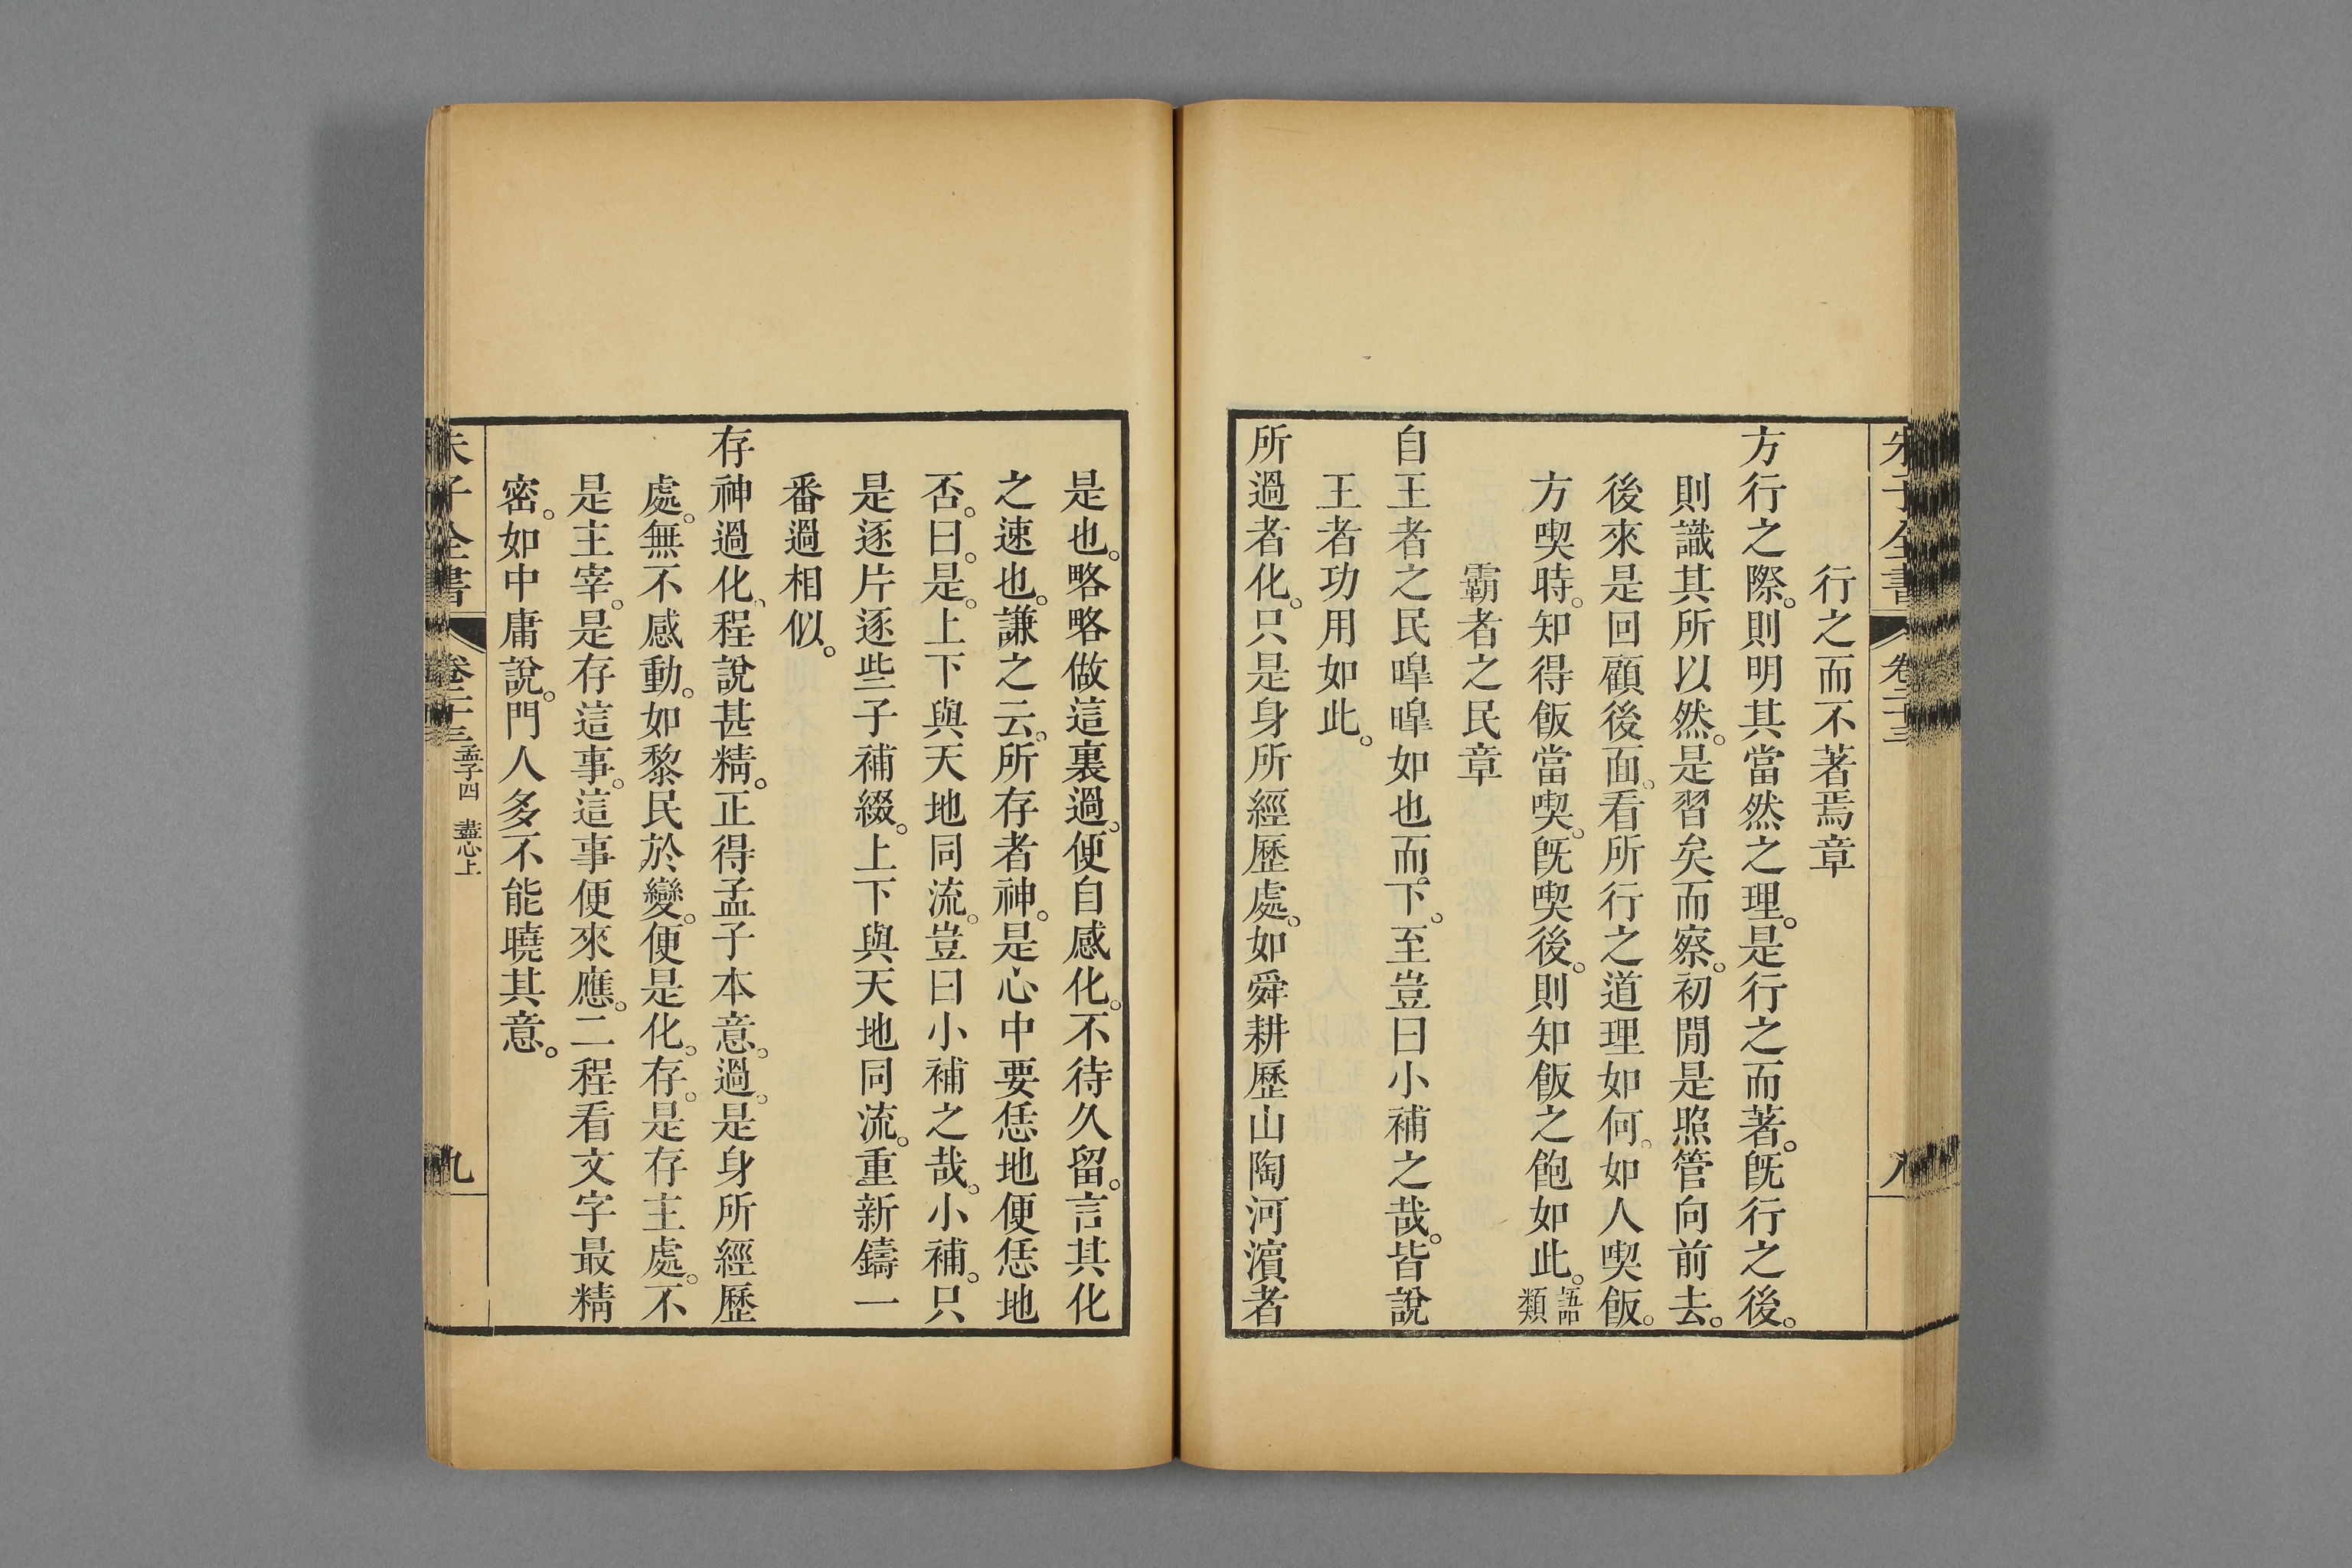 朱子全書 卷二十三 八
行之而不著焉章
方行之際。則明其當然之理。是行之而著。旣行之後。
則識其所以然。是習矣而察。初閒是照管向前去。
後來是回顧後面。看所行之道理如何。如人喫飯。
方喫時。知得飯當喫。旣喫後。則知飯之飽如此。語類
霸者之民章
自王者之民皥皥如也而。下。至豈曰小補之哉。皆說
王者功用如此。
所過者化。只是身所經歷處。如舜耕歷山陶河濱者
是也。略略做這裏過。便自感化。不待久留。言其化
之速也。謙之云。所存者神。是心中要恁地便恁地
否。曰。是。上下與天地同流。豈曰小補之哉。小補。只
是逐片逐些子補綴。上下與天地同流。重新鑄一
番過相似。
存神過化、程說甚精。正得孟子本意。過。是身所經歷
處。無不感動。如黎民於變。便是化。存。是存主處。不
是主宰。是存這事。這事便來應。二程看文字最精
密。如中庸說。門人多不能曉其意。
朱子全書 卷二十三 孟子四 盡心上 九